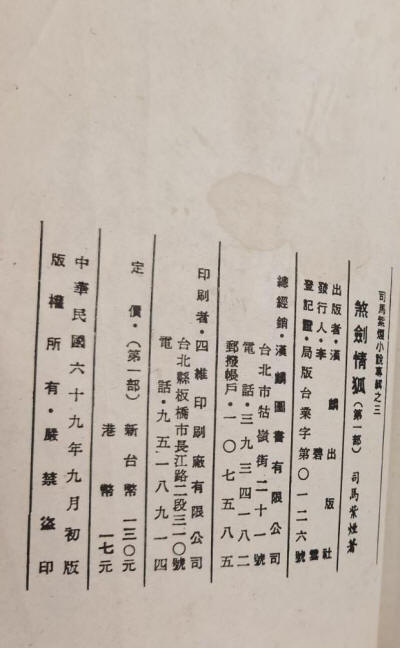 司馬紫煙小說專輯之三
煞劍情狐(第一部) 司馬紫煙著
出版者·漢麟出版社
發行人·李碧雲
登記證·局版台業字第〇一二六號
總經銷·漢麟圖書有限公司
台北市牯嶺街二十一號
電話·三九三四一八二
郵撥帳戶·一〇七五八五
印刷者·四維印刷廠有限公司
台北縣板橋市長江路二段三一〇號
電話·九五一八九一四
定價·(第一部)新台幣一三〇元
港幣一七元
中華民國六十九年九月初版
版權所有·嚴禁盜印